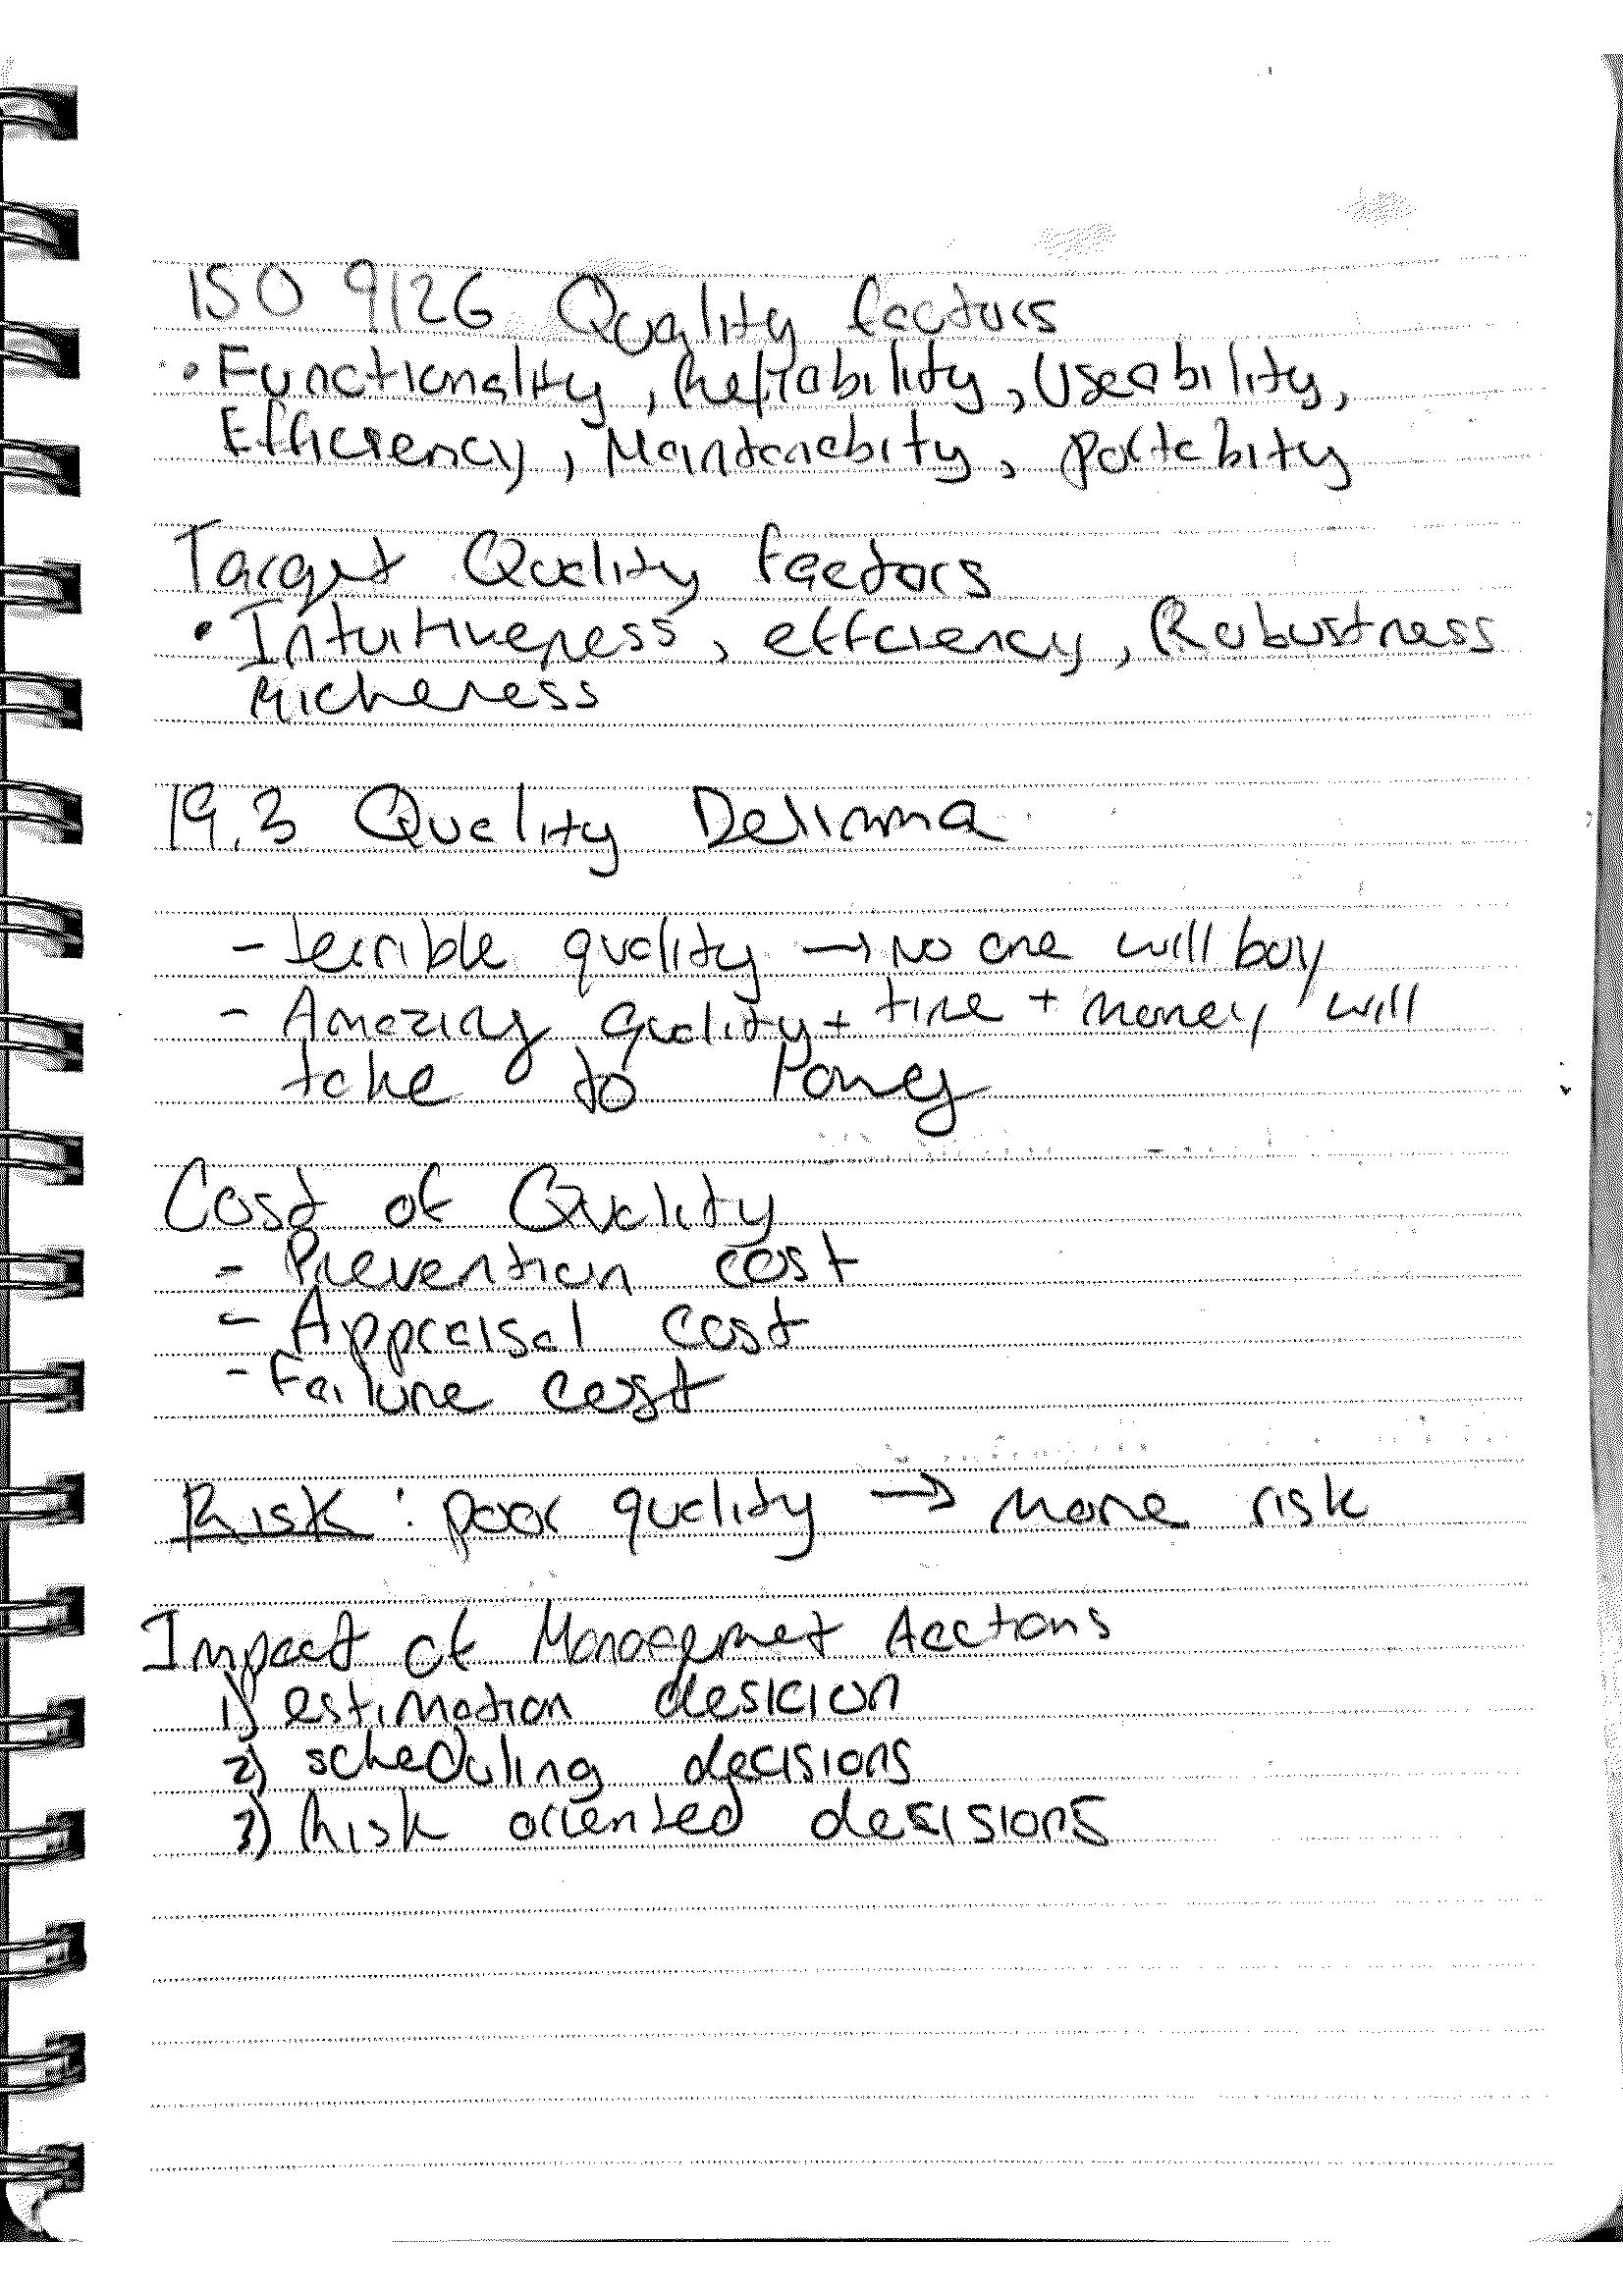 ISO 9126 Quality factors
• Functionality, Reliability, Useability,
Efficiency, Maintenabity, portabity
Target Quality factors
• Intuitiveness, effciency, Robustness
Richeness
19.3 Quality Delimma
- terrible quality → No one will buy
- Amazing quality + time + money will
take to long
Cost of Quality
- Prevention cost
- Appraisal cost
- Failure cost
Risk: poor quality → more risk
Impact of Managemet Aactions
1) estimation desicion
2) scheduling decisions
3) Risk oriented desisions